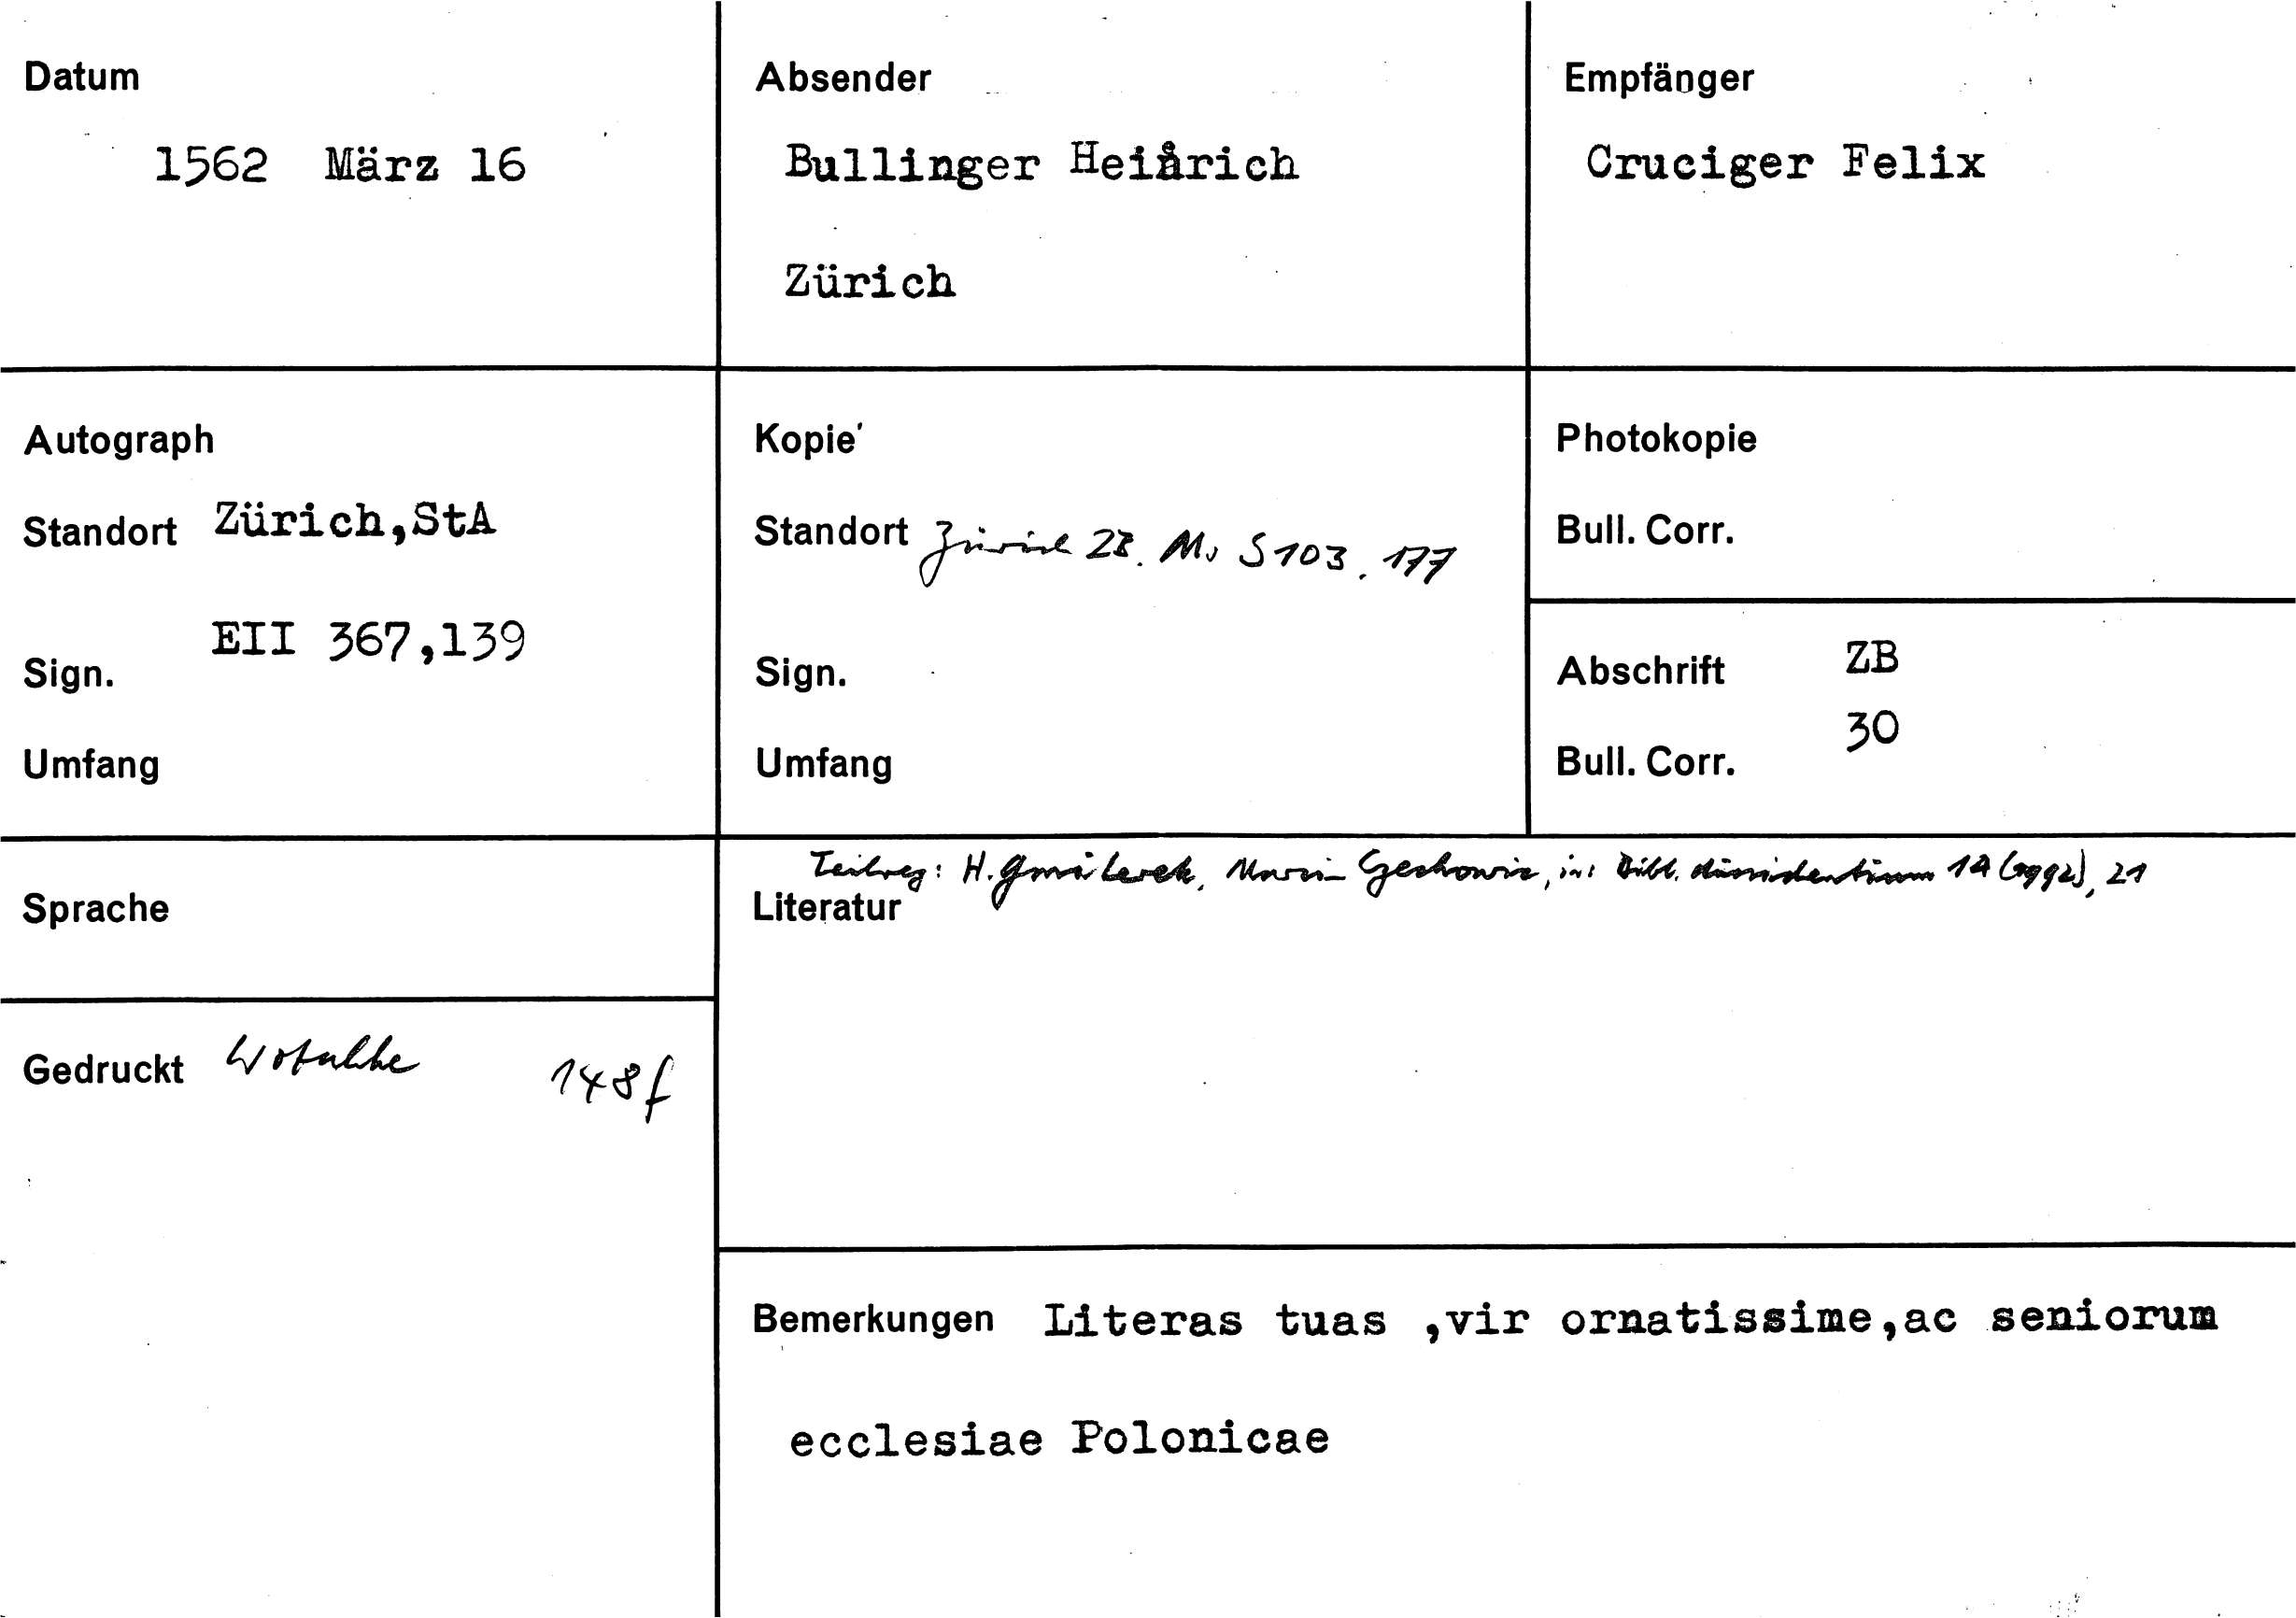 Datum
1562 März 16
Absender
Bullinger Heinrich
Zürich
Empfänger
Cruciger Felix
Autograph
Standort Zürich,StA
Sign. EII 367,139
Umfang
Kopie
Standort Zürich ZB. Ms S 103, 177
Sign.
Umfang
Photokopie
Bull. Corr.
Abschrift ZB
Bull. Corr. 30
Sprache
Gedruckt Wotschke 148f
Teilreg: H. in: Bibl. dissidentium 14 (1992), 21
Literatur
Bemerkungen Literas tuas ,vir ornatissime,ac seniorum
ecclesiae Polonicae